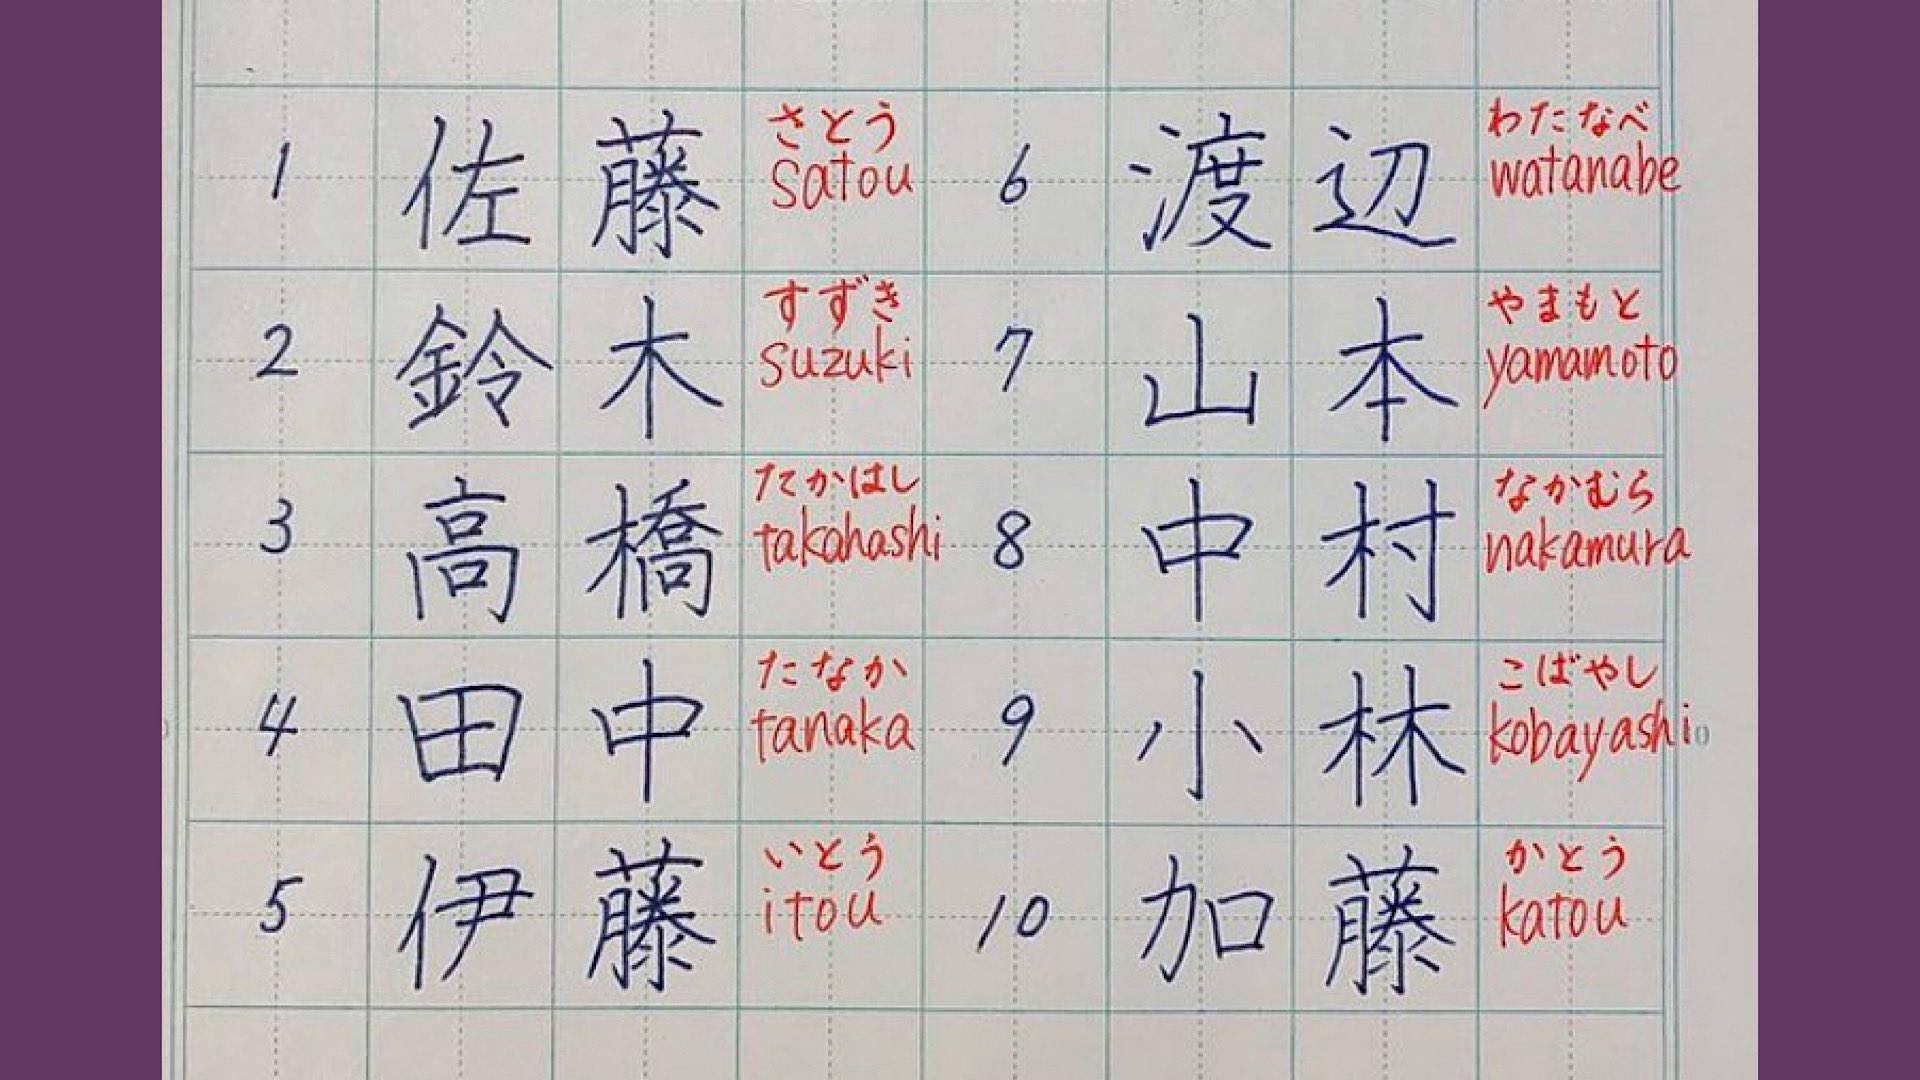 1 佐藤 さとう satou
2 鈴木 すずき suzuki
3 高橋 たかはし takahashi
4 田中 たなか tanaka
5 伊藤 いとう itou
6 渡辺 わたなべ watanabe
7 山本 やまもと yamamoto
8 中村 なかむら nakamura
9 小林 こばやし kobayashi
10 加藤 かとう katou